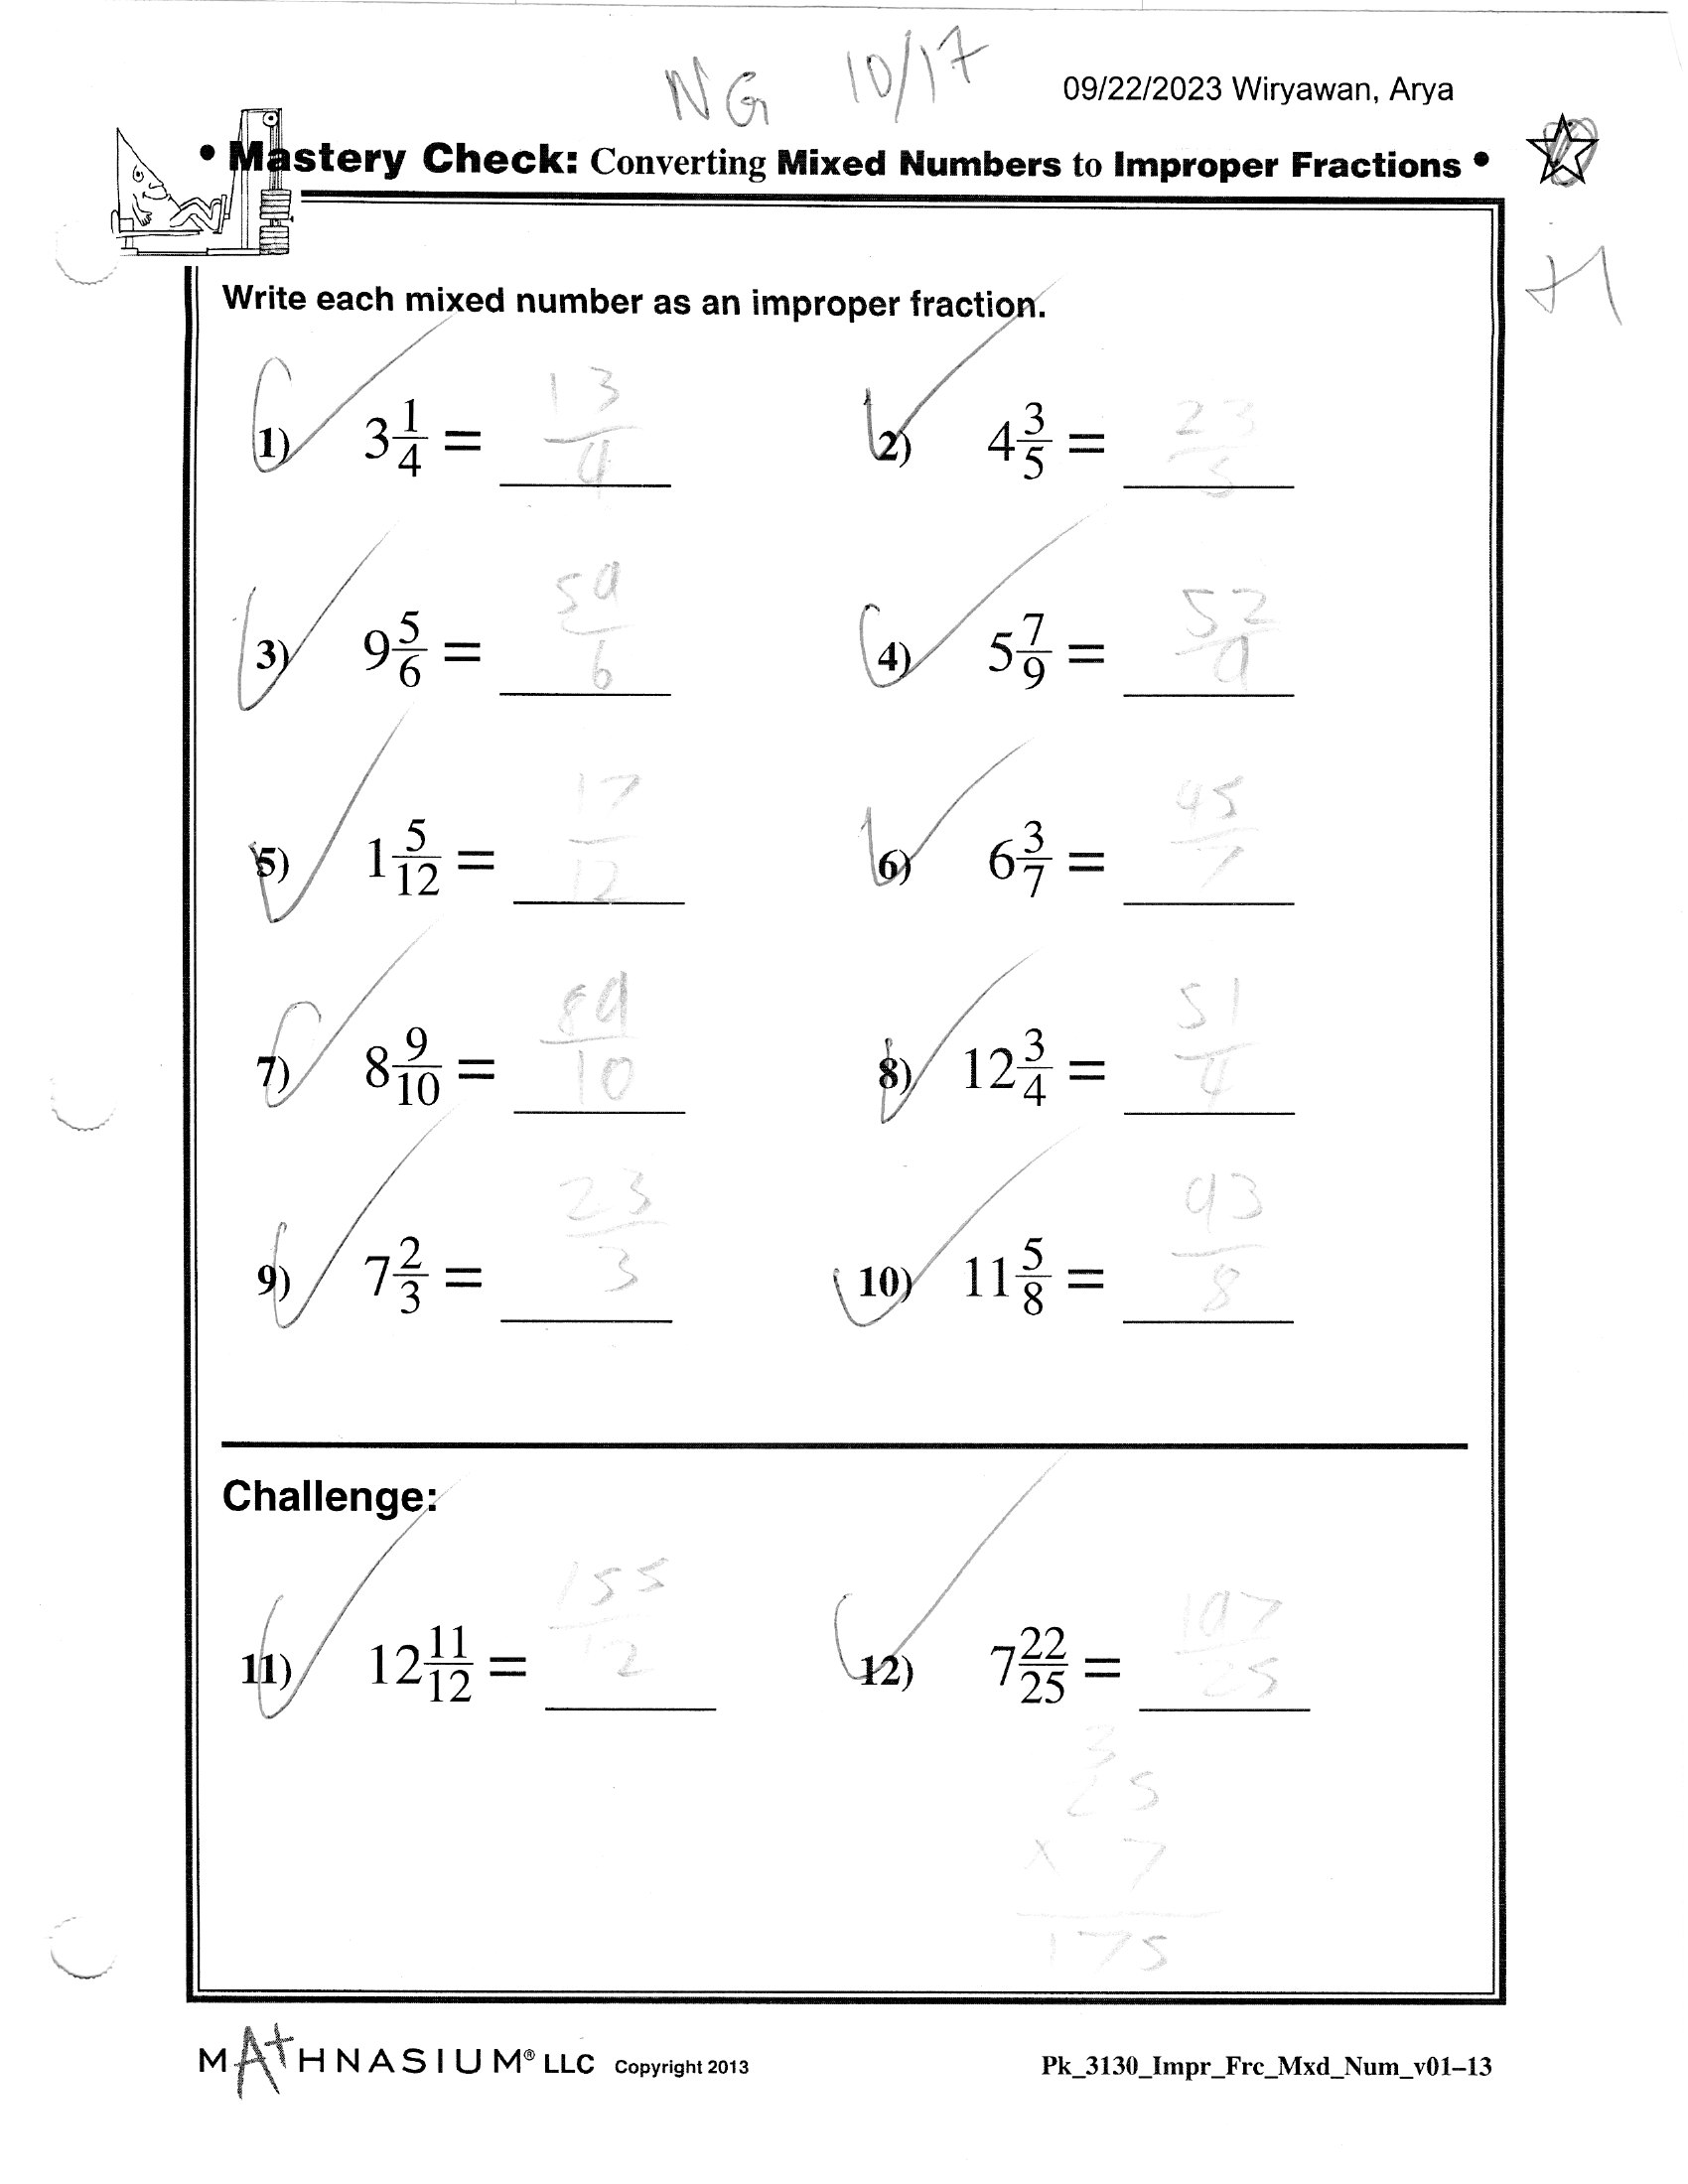 NG 10/17
09/22/2023 Wiryawan, Arya
• Mastery Check: Converting Mixed Numbers to Improper Fractions •
+1
Write each mixed number as an improper fraction.
1) 3 1/4 = 13/4
2) 4 3/5 = 23/5
3) 9 5/6 = 59/6
4) 5 7/9 = 52/9
5) 1 5/12 = 17/12
6) 6 3/7 = 45/7
7) 8 9/10 = 89/10
8) 12 3/4 = 51/4
9) 7 2/3 = 23/3
10) 11 5/8 = 93/8
Challenge:
11) 12 11/12 = 155/12
12) 7 22/25 = 197/25
3
25
x 7
175
MATHNASIUM® LLC Copyright 2013
Pk_3130_Impr_Frc_Mxd_Num_v01–13